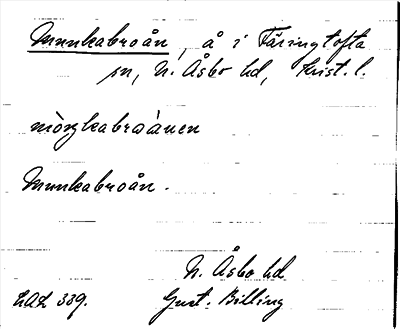 Munkabroån, å i Färingtofta
sn, N. Åsbo hd, Krist. l.
Munkabroån.
N. Åsbo hd
LAL 339. Gust. Billing